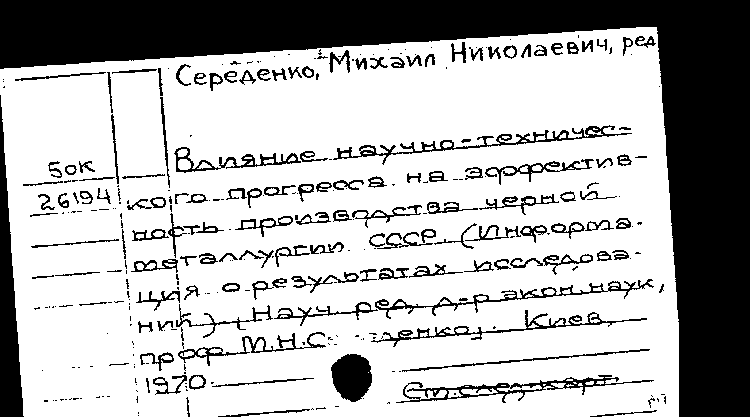 Середенко, Михаил Николаевич, ред
50К
26194
Влияние научно-техничес-
кого прогресса на эффектив-
ность производства черной
металлургии СССР. (Информа-
ция о результатах исследова-
ний). Науч. ред. д-р экон. наук,
проф. М.Н. Киев,
1970.
См. след. карт.